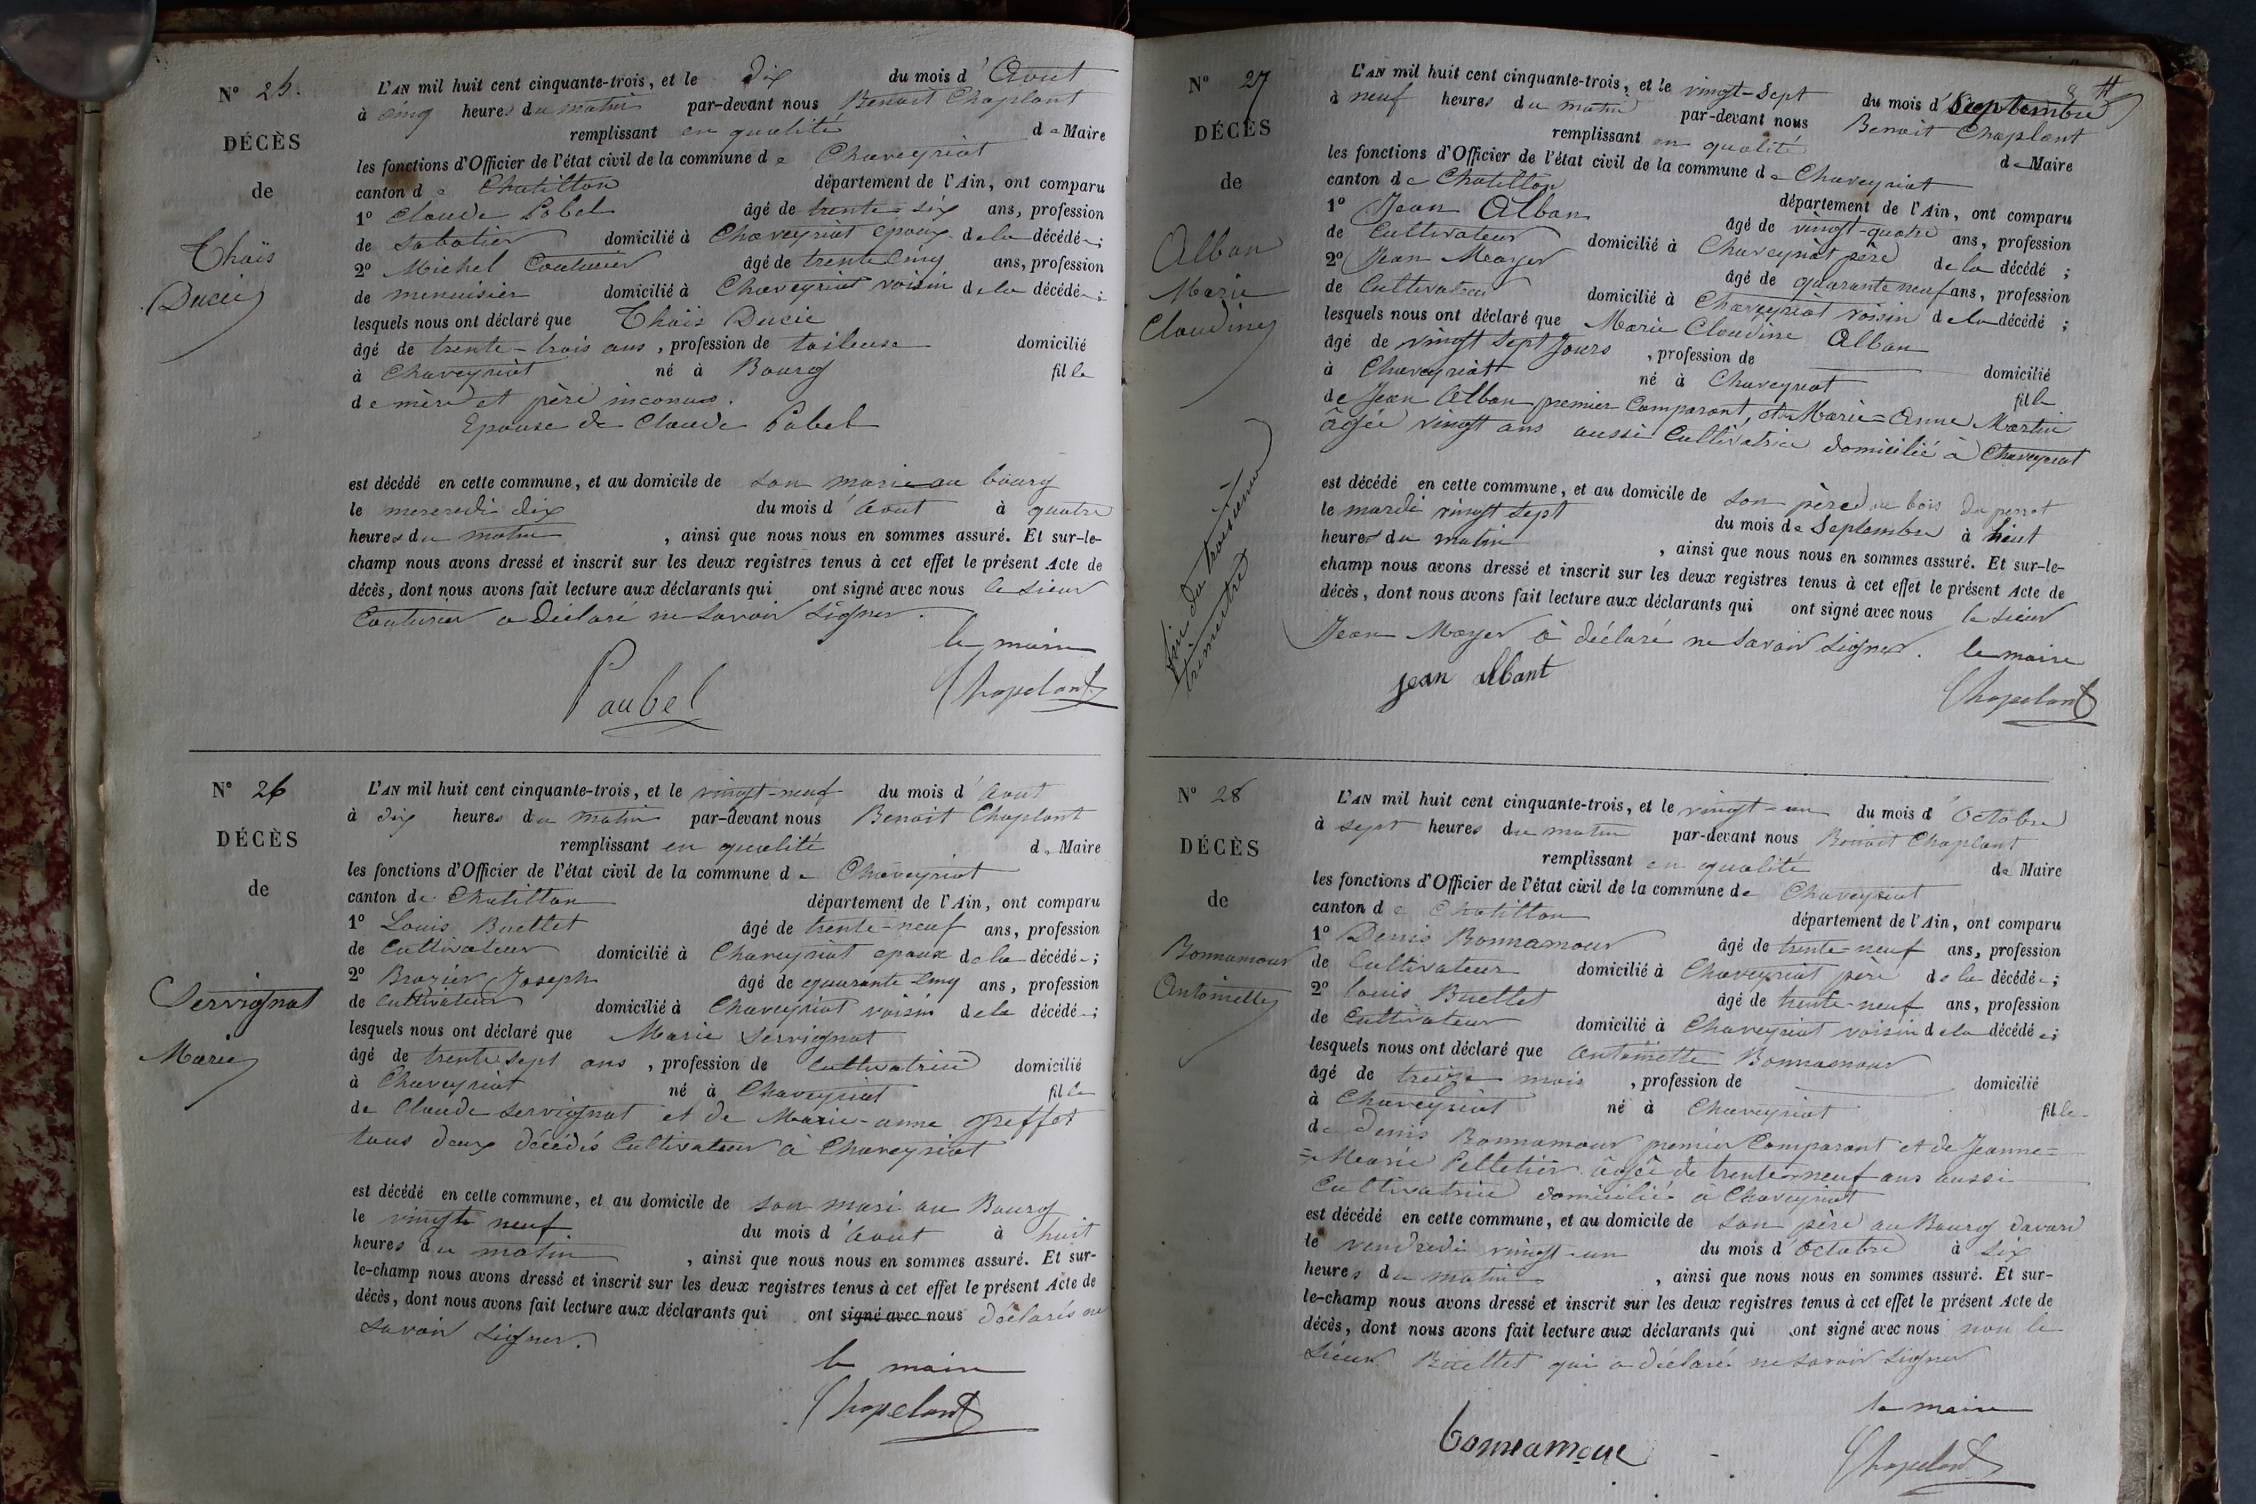 N° 25.
DÉCÈS
de
Thaïs
Ducie
L'AN mil huit cent cinquante-trois, et le dix du mois d'Aout
à cinq heures du matin par-devant nous Benoit Chaplant
remplissant en qualité de Maire
les fonctions d'Officier de l'état civil de la commune de Chaveyriat
canton de Chatillon département de l'Ain, ont comparu
1° Claude Pobel âgé de trente-six ans, profession
de sabotier domicilié à Chaveyriat epoux de la décédée;
2° Michel Couturier âgé de trente cinq ans, profession
de menuisier domicilié à Chaveyriat voisin de la décédée;
lesquels nous ont déclaré que Thaïs Ducie
âgé de trente-trois ans, profession de taileuse domicilié
à Chaveyriat né à Bourg fille
de mère et père inconus.
Epouse de Claude Pobel
est décédé en cette commune, et au domicile de son marie au bourg
le mercredi dix du mois d'Aout à quatre
heures du matin, ainsi que nous nous en sommes assuré. Et sur-le-
champ nous avons dressé et inscrit sur les deux registres tenus à cet effet le présent Acte de
décès, dont nous avons fait lecture aux déclarants qui ont signé avec nous le sieur
Couturier a déclaré ne savoir signer.
le maire
Paubel Chapelant
N° 26
DÉCÈS
de
Servignat
Marie
L'AN mil huit cent cinquante-trois, et le vingt-neuf du mois d'Aout
à dix heures du matin par-devant nous Benoit Chaplant
remplissant en qualité de Maire
les fonctions d'Officier de l'état civil de la commune de Chaveyriat
canton de Chatillon département de l'Ain, ont comparu
1° Louis Buellet âgé de trente-neuf ans, profession
de Cultivateur domicilié à Chaveyriat epoux de la décédée;
2° Brazier Joseph âgé de quarante cinq ans, profession
de cultivateur domicilié à Chaveyriat voisin de la décédée;
lesquels nous ont déclaré que Marie Servignat
âgé de trente sept ans, profession de Cultivatrice domicilié
à Chaveyriat né à Chaveyriat fille
de Claude Servignat et de Marie-anne greffet
tous deux décédés Cultivateur à Chaveyriat
est décédé en cette commune, et au domicile de son mari au Bourg
le vingt neuf du mois d'Aout à huit
heures du matin, ainsi que nous nous en sommes assuré. Et sur-
le-champ nous avons dressé et inscrit sur les deux registres tenus à cet effet le présent Acte de
décès, dont nous avons fait lecture aux déclarants qui ont signé avec nous déclarés ne
savoir signer.
le maire
Chapelant
N° 27
DÉCÈS
de
Alban
Marie
Claudine
Vu du troisieme
trimestre
L'AN mil huit cent cinquante-trois, et le vingt-sept du mois d'Septembre
à neuf heures du matin par-devant nous Benoit Chaplant
remplissant en qualité de Maire
les fonctions d'Officier de l'état civil de la commune de Chaveyriat
canton de Chatillon département de l'Ain, ont comparu
1° Jean Alban âgé de vingt-quatre ans, profession
de Cultivateur domicilié à Chaveyriat père de la décédé;
2° Jean Mayer âgé de quarante neuf ans, profession
de Cultivateur domicilié à Chaveyriat voisin de la décédé;
lesquels nous ont déclaré que Marie Claudine Alban
âgé de vingt sept jours, profession de domicilié
à Chaveyriat né à Chaveyriat fille
de Jean Alban premier Comparant, et de Marie-Anne Martin
âgée vingt ans aussi Cultivatrice domicilié à Chaveyriat
est décédé en cette commune, et au domicile de son père au bois du perrat
le mardi vingt sept du mois de Septembre à huit
heures du matin, ainsi que nous nous en sommes assuré. Et sur-le-
champ nous avons dressé et inscrit sur les deux registres tenus à cet effet le présent Acte de
décès, dont nous avons fait lecture aux déclarants qui ont signé avec nous le sieur
Jean Mayer à déclaré ne savoir signer. le maire
jean Albant Chapelant
N° 28
DÉCÈS
de
Bonnamour
Antoinette
L'AN mil huit cent cinquante-trois, et le vingt-un du mois d'Octobre
à sept heures du matin par-devant nous Benoit Chaplant
remplissant en qualité de Maire
les fonctions d'Officier de l'état civil de la commune de Chaveyriat
canton de Chatillon département de l'Ain, ont comparu
1° Denis Bonnamour âgé de trente-neuf ans, profession
de Cultivateur domicilié à Chaveyriat pere de la décédée;
2° Louis Buellet âgé de trente-neuf ans, profession
de Cultivateur domicilié à Chaveyriat voisin de la décédée;
lesquels nous ont déclaré que Antoinette Bonnamour
âgé de treize mois, profession de domicilié
à Chaveyriat né à Chaveyriat fille
de Denis Bonnamour premier Comparant et de Jeanne=
=Marie Pelletier âgée de trente-neuf ans aussi
Cultivatrice domicilié à Chaveyriat
est décédé en cette commune, et au domicile de son père au Bourg
le vendredi vingt-un du mois d'Octobre à six
heures du matin, ainsi que nous nous en sommes assuré. Et sur-
le-champ nous avons dressé et inscrit sur les deux registres tenus à cet effet le présent Acte de
décès, dont nous avons fait lecture aux déclarants qui ont signé avec nous non le
sieur Buellet qui a déclaré ne savoir signer
le maire
bonnamour Chapelant